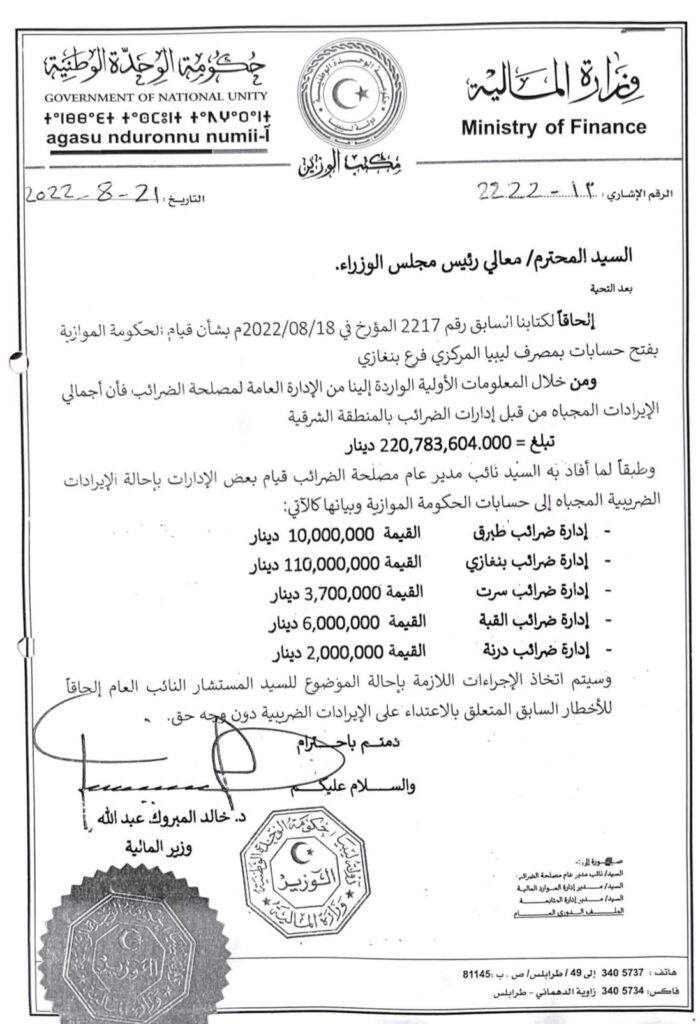 حكومة الوحدة الوطنية
GOVERNMENT OF NATIONAL UNITY
agasu nduronnu numii-Ī
وزارة المالية
Ministry of Finance
مكتب الوزير
الرقم الإشاري: ١٢ - 2222
التاريخ: 2022-8-21
السيد المحترم/ معالي رئيس مجلس الوزراء.
بعد التحية
إلحاقاً لكتابنا السابق رقم 2217 المؤرخ في 2022/08/18م بشأن قيام الحكومة الموازية
بفتح حسابات بمصرف ليبيا المركزي فرع بنغازي
ومن خلال المعلومات الأولية الواردة إلينا من الإدارة العامة لمصلحة الضرائب فأن أجمالي
الإيرادات المجباه من قبل إدارات الضرائب بالمنطقة الشرقية
تبلغ = 220,783,604.000 دينار
وطبقاً لما أفاد به السيد نائب مدير عام مصلحة الضرائب قيام بعض الإدارات بإحالة الإيرادات
الضريبية المجباه إلى حسابات الحكومة الموازية وبيانها كالآتي:
- إدارة ضرائب طبرق القيمة 10,000,000 دينار
- إدارة ضرائب بنغازي القيمة 110,000,000 دينار
- إدارة ضرائب سرت القيمة 3,700,000 دينار
- إدارة ضرائب القبة القيمة 6,000,000 دينار
- إدارة ضرائب درنة القيمة 2,000,000 دينار
وسيتم اتخاذ الإجراءات اللازمة بإحالة الموضوع للسيد المستشار النائب العام إلحاقاً
للأخطار السابق المتعلق بالاعتداء على الإيرادات الضريبية دون وجه حق.
دمتم باحترام
والسلام عليكم
د. خالد المبروك عبد الله
وزير المالية
دولة ليبيا حكومة الوحدة الوطنية
الوزير
وزارة المالية
صورة إلى:-
السيد/ نائب مدير عام مصلحة الضرائب
السيد/ مدير إدارة الموارد المالية
السيد/ مدير إدارة المتابعة
الملف الدوري العام
هاتف: 5737 340 إلى 49 / طرابلس/ ص . ب :81145
فاكس: 5734 340 زاوية الدهماني - طرابلس